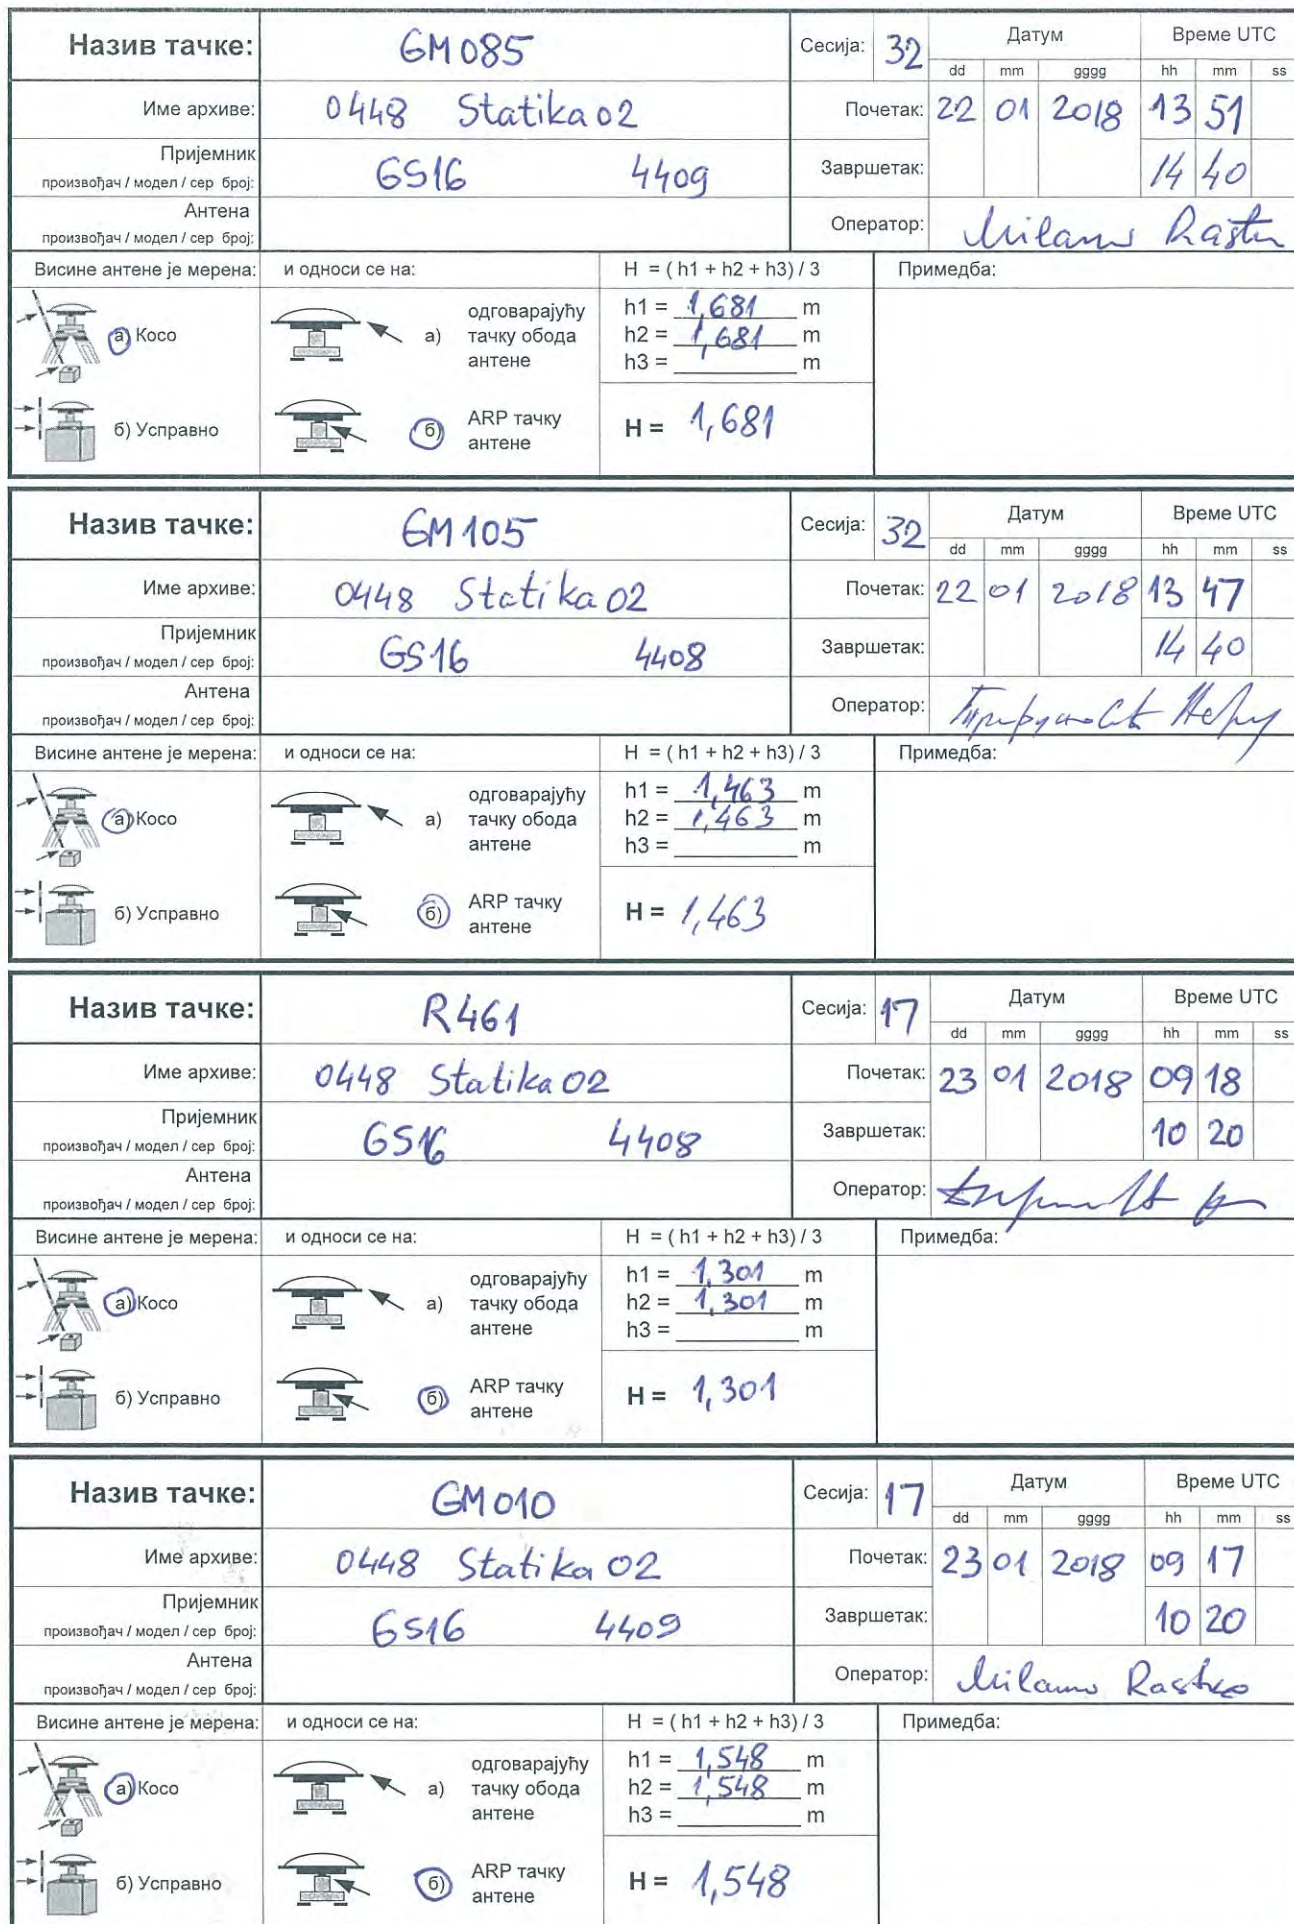 Назив тачке: GM085 Сесија: 32 Датум Време UTC
dd mm gggg hh mm ss
Име архиве: 0448 Statika 02 Почетак: 22 01 2018 13 51
Пријемник
произвођач / модел / сер број: GS16 4409 Завршетак: 14 40
Антена
произвођач / модел / сер број: Оператор:
Висине антене је мерена: и односи се на: H = ( h1 + h2 + h3) / 3 Примедба:
а) Косо а) одговарајућу тачку обода антене
h1 = 1,681 m
h2 = 1,681 m
h3 = m
б) Усправно б) ARP тачку антене H = 1,681
Назив тачке: GM105 Сесија: 32 Датум Време UTC
dd mm gggg hh mm ss
Име архиве: 0448 Statika 02 Почетак: 22 01 2018 13 47
Пријемник
произвођач / модел / сер број: GS16 4408 Завршетак: 14 40
Антена
произвођач / модел / сер број: Оператор:
Висине антене је мерена: и односи се на: H = ( h1 + h2 + h3) / 3 Примедба:
а) Косо а) одговарајућу тачку обода антене
h1 = 1,463 m
h2 = 1,463 m
h3 = m
б) Усправно б) ARP тачку антене H = 1,463
Назив тачке: R461 Сесија: 17 Датум Време UTC
dd mm gggg hh mm ss
Име архиве: 0448 Statika 02 Почетак: 23 01 2018 09 18
Пријемник
произвођач / модел / сер број: GS16 4408 Завршетак: 10 20
Антена
произвођач / модел / сер број: Оператор:
Висине антене је мерена: и односи се на: H = ( h1 + h2 + h3) / 3 Примедба:
а) Косо а) одговарајућу тачку обода антене
h1 = 1,301 m
h2 = 1,301 m
h3 = m
б) Усправно б) ARP тачку антене H = 1,301
Назив тачке: GM010 Сесија: 17 Датум Време UTC
dd mm gggg hh mm ss
Име архиве: 0448 Statika 02 Почетак: 23 01 2018 09 17
Пријемник
произвођач / модел / сер број: GS16 4409 Завршетак: 10 20
Антена
произвођач / модел / сер број: Оператор: Rastko
Висине антене је мерена: и односи се на: H = ( h1 + h2 + h3) / 3 Примедба:
а) Косо а) одговарајућу тачку обода антене
h1 = 1,548 m
h2 = 1,548 m
h3 = m
б) Усправно б) ARP тачку антене H = 1,548